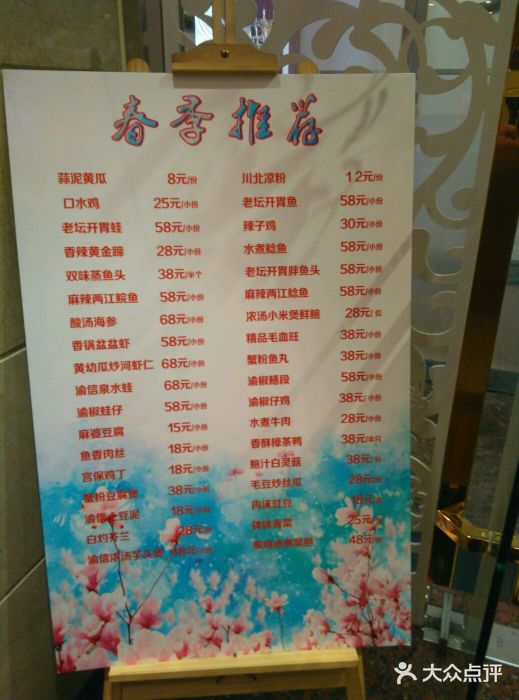 春季推荐
蒜泥黄瓜 8元/份
口水鸡 25元/小份
老坛开胃蛙 58元/小份
香辣黄金蹄 28元/小份
双味蒸鱼头 38元/半个
麻辣两江鲩鱼 58元/小份
酸汤海参 68元/小份
香锅盆盆虾 58元/小份
黄幼瓜炒河虾仁 68元/小份
渝信泉水蛙 68元/小份
渝椒蛙仔 58元/小份
麻婆豆腐 15元/小份
鱼香肉丝 18元/小份
宫保鸡丁 18元/小份
蟹粉豆腐煲 38元/小份
渝信土豆泥 18元/小份
白灼芥兰 28元/份
渝信浓汤芋头煲 48元
川北凉粉 12元/份
老坛开胃鱼 58元/小份
辣子鸡 30元/小份
水煮鲶鱼 58元/小份
老坛开胃胖鱼头 58元/小份
麻辣两江鲶鱼 58元/小份
浓汤小米煲鲜鲍 28元/位
精品毛血旺 38元/小份
蟹粉鱼丸 38元/小份
渝椒鳝段 58元/小份
渝椒仔鸡 38元/小份
水煮牛肉 28元/小份
香酥樟茶鸭 38元/半只
鲍汁白灵菇 38元/份
毛豆炒丝瓜 28元/份
肉沫豇豆 18元
钵钵青菜 25元
48元
大众点评